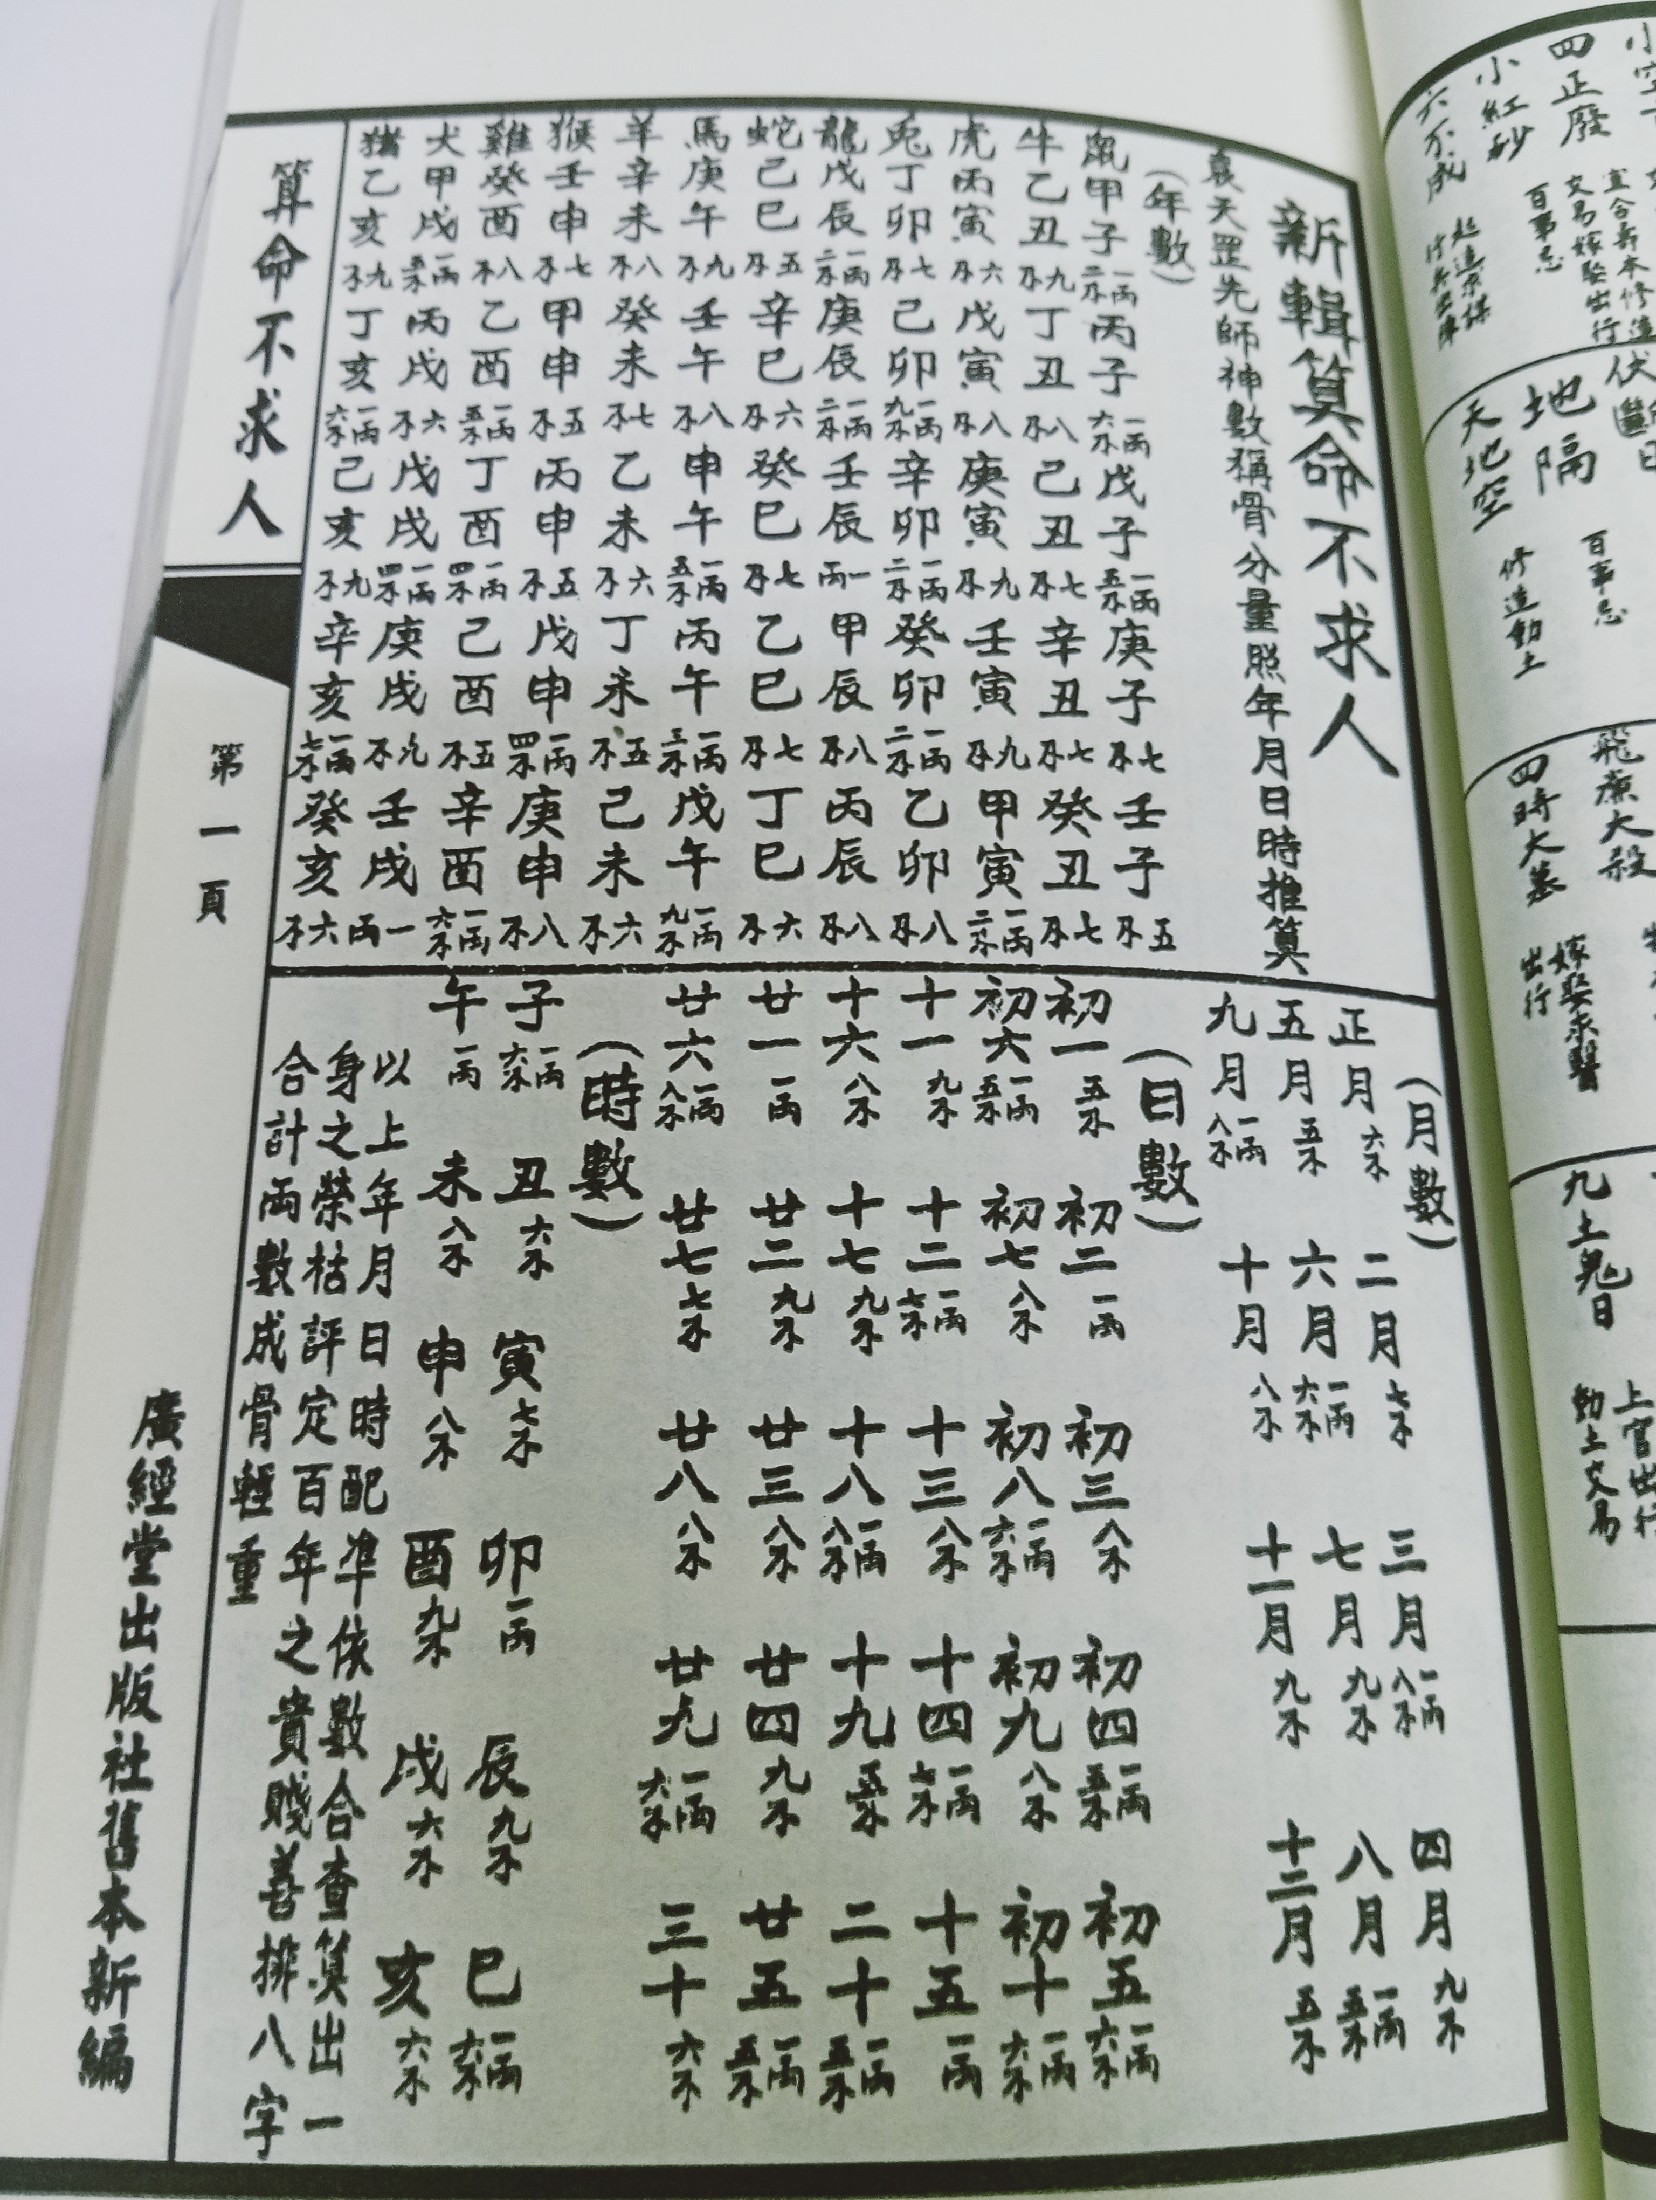 四正廢
百事忌
小紅砂
六不成
地隔
百事忌
天地空
修造動土
飛廉大殺
四時大墓
嫁娶求醫
出行
九土鬼日
上官出行
動土交易
新輯算命不求人
袁天罡先師神數稱骨分量照年月日時推算
(年數)
鼠甲子一兩二錢丙子一兩六錢戊子一兩五錢庚子七錢壬子五錢
牛乙丑九錢丁丑八錢己丑七錢辛丑七錢癸丑七錢
虎丙寅六錢戊寅八錢庚寅九錢壬寅九錢甲寅一兩二錢
兎丁卯七錢己卯一兩九錢辛卯一兩二錢癸卯一兩二錢乙卯八錢
龍戊辰一兩二錢庚辰一兩二錢壬辰一兩甲辰八錢丙辰八錢
蛇己巳五錢辛巳六錢癸巳七錢乙巳七錢丁巳六錢
馬庚午九錢壬午八錢申午一兩五錢丙午一兩三錢戊午一兩九錢
羊辛未八錢癸未七錢乙未六錢丁未五錢己未六錢
猴壬申七錢甲申五錢丙申五錢戊申一兩四錢庚申八錢
雞癸酉八錢乙酉一兩五錢丁酉一兩四錢己酉五錢辛酉一兩六錢
犬甲戌一兩五錢丙戌六錢戊戌一兩四錢庚戌九錢壬戌一兩
猪乙亥九錢丁亥一兩六錢己亥九錢辛亥一兩七錢癸亥六錢
(月數)
正月六錢 二月七錢 三月一兩八錢 四月九錢
五月五錢 六月一兩六錢 七月九錢 八月一兩五錢
九月一兩八錢 十月八錢 十一月九錢 十二月五錢
(日數)
初一五錢 初二一兩 初三八錢 初四一兩五錢 初五一兩六錢
初六一兩五錢 初七八錢 初八一兩六錢 初九八錢 初十一兩六錢
十一九錢 十二一兩七錢 十三八錢 十四一兩七錢 十五一兩
十六八錢 十七九錢 十八一兩八錢 十九五錢 二十一兩五錢
廿一一兩 廿二九錢 廿三八錢 廿四九錢 廿五一兩五錢
廿六一兩八錢 廿七七錢 廿八八錢 廿九一兩六錢 三十六錢
(時數)
子一兩六錢 丑六錢 寅七錢 卯一兩 辰九錢 巳一兩六錢
午一兩 未八錢 申八錢 酉九錢 戌六錢 亥六錢
以上年月日時配準依數合查算出一
身之榮枯評定百年之貴賤善排八字
合計兩數成骨輕重
算命不求人
第一頁
廣經堂出版社舊本新編